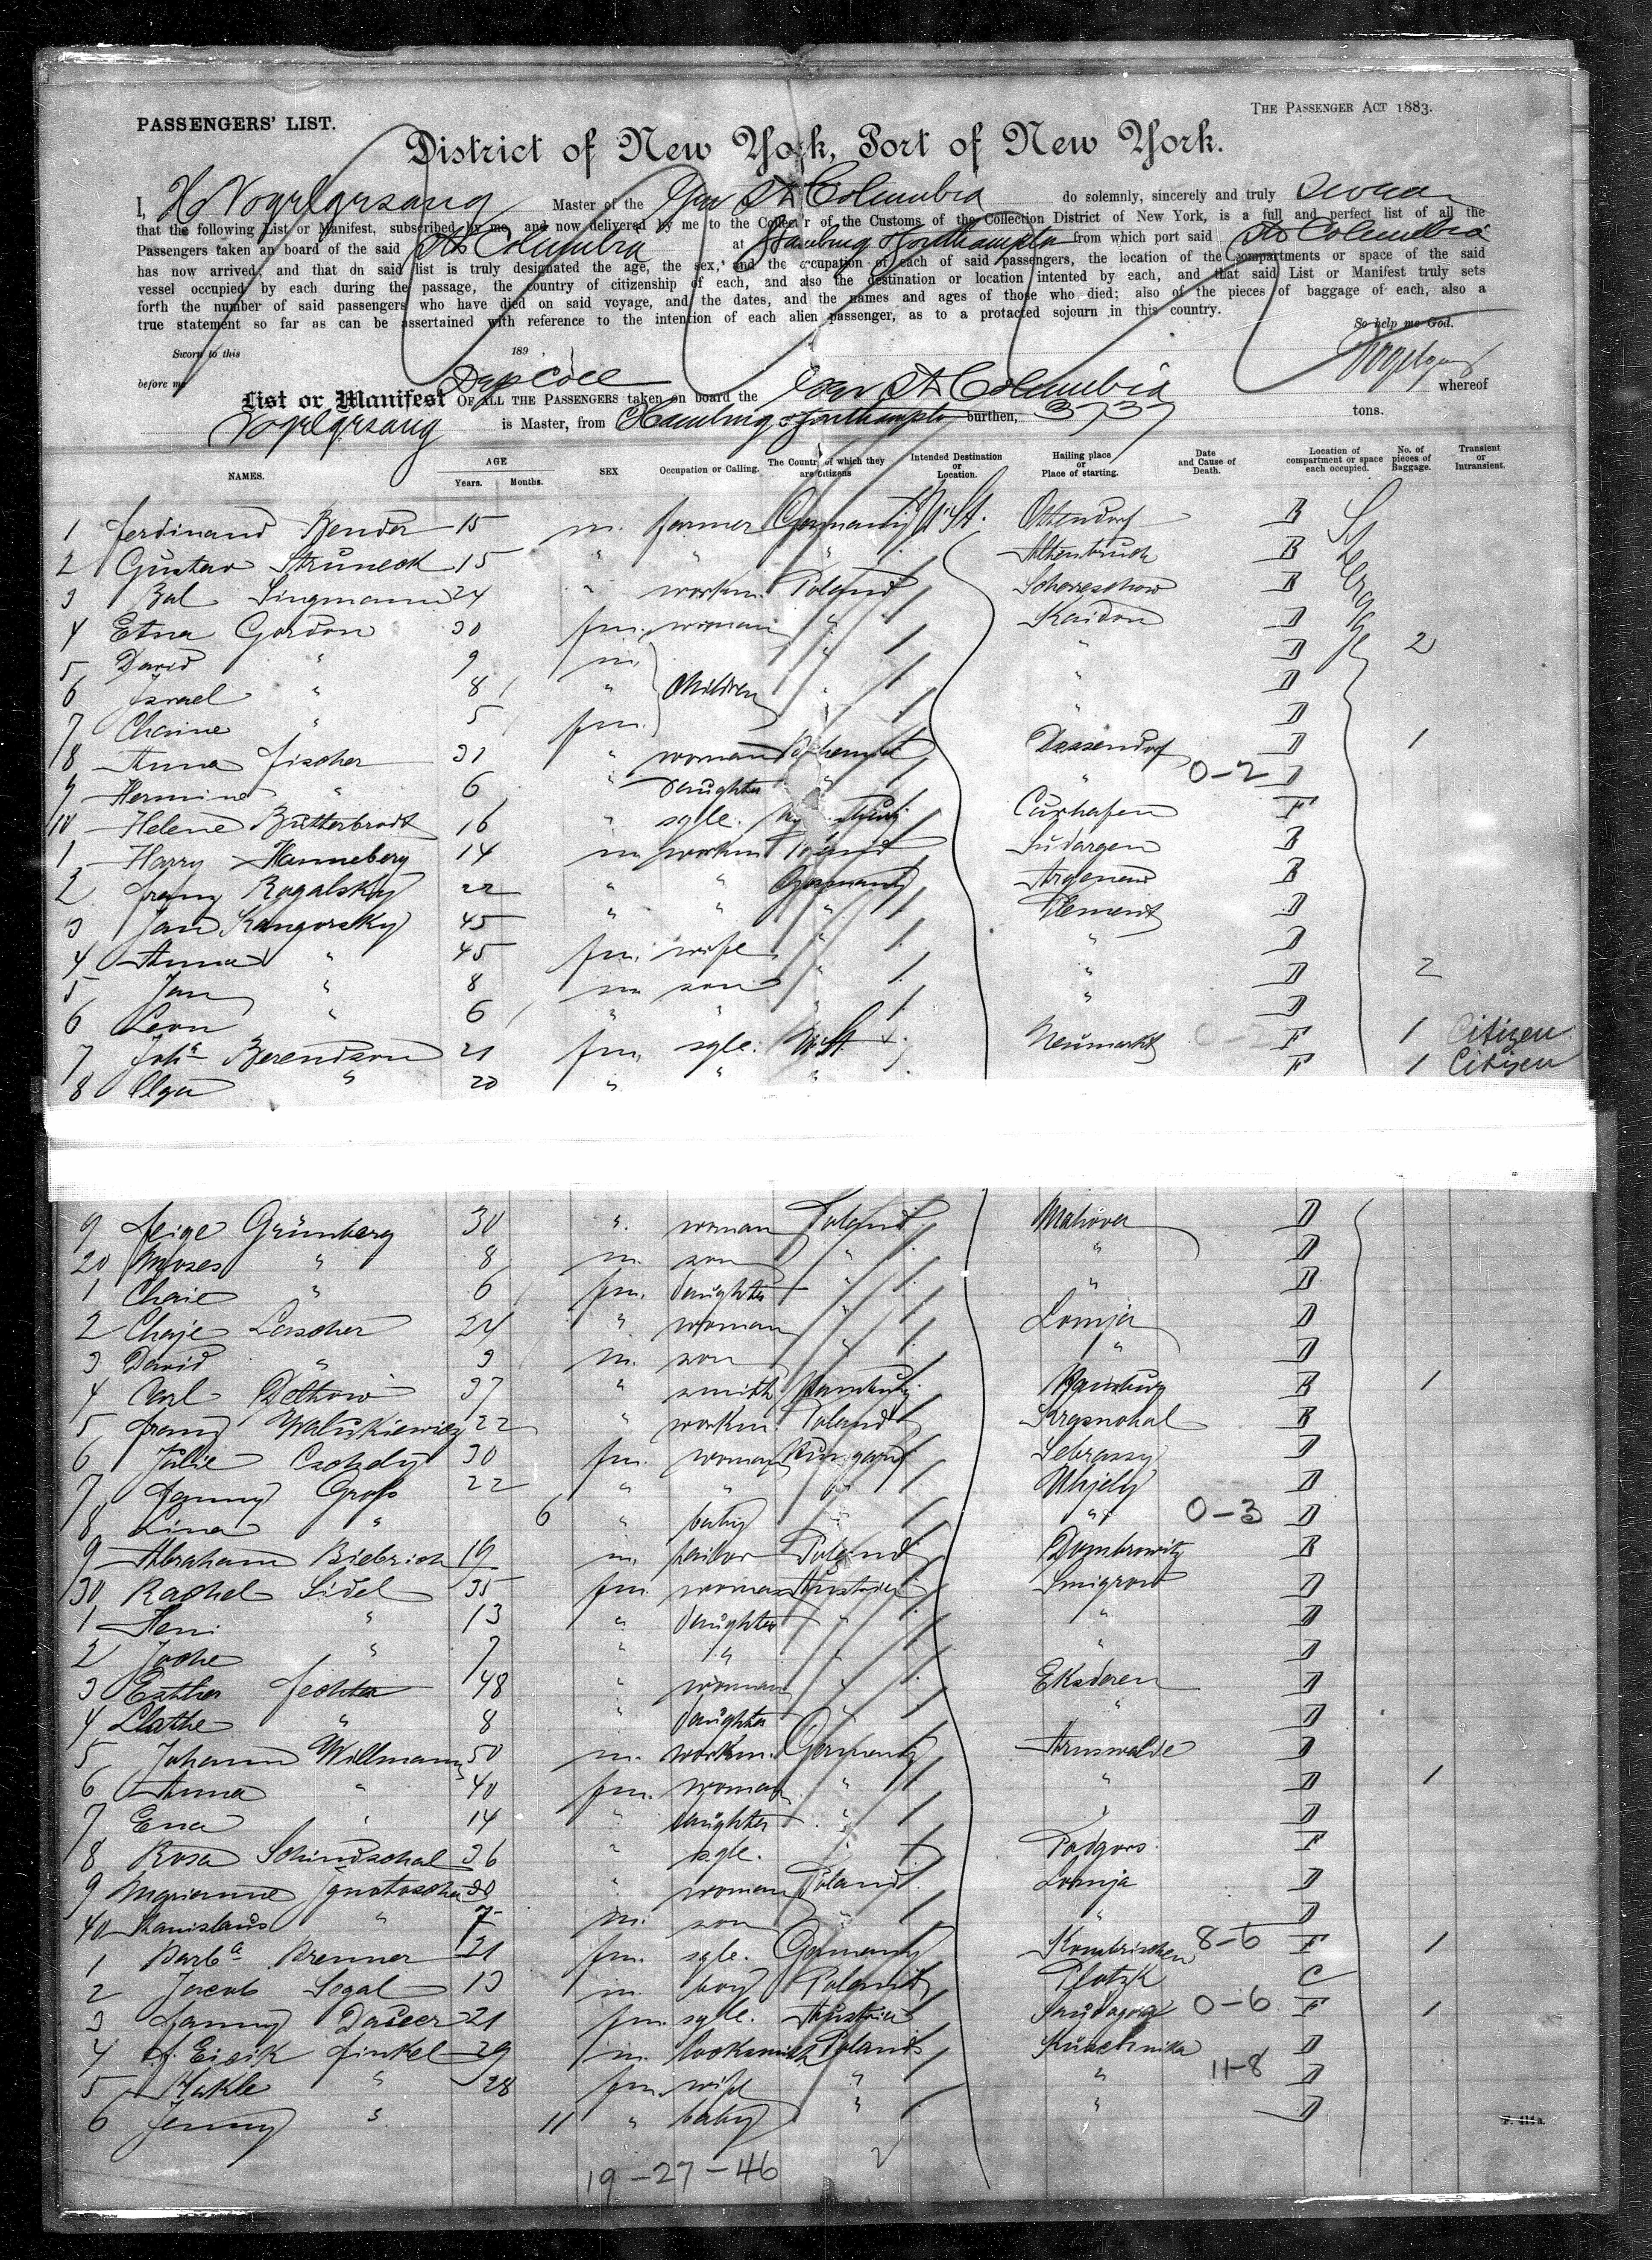 PASSENGERS' LIST.
THE PASSENGER ACT 1883.
District of New York, Port of New York.
I, H Vogelgesang Master of the Ger St Columbia do solemnly, sincerely and truly swear
that the following List or Manifest, subscribed by me, and now delivered by me to the Collect'r of the Customs of the Collection District of New York, is a full and perfect list of all the
Passengers taken an board of the said SS Columbia at Hamburg & Southampton from which port said SS Columbia
has now arrived; and that on said list is truly designated the age, the sex, and the occupation of each of said passengers, the location of the compartments or space of the said
vessel occupied by each during the passage, the country of citizenship of each, and also the destination or location intented by each, and that said List or Manifest truly sets
forth the number of said passengers who have died on said voyage, and the dates, and the names and ages of those who died; also of the pieces of baggage of each, also a
true statement so far as can be assertained with reference to the intention of each alien passenger, as to a protacted sojourn in this country.
So help me God.
Sworn to this 189
before me Dep Coll Vogelgesang
List or Manifest OF ALL THE PASSENGERS taken on board the Ger St Columbia whereof
Vogelgesang is Master, from Hamburg & Southampton burthen, 3737 tons.
NAMES. AGE Years. Months. SEX Occupation or Calling. The Country of which they are citizens Intended Destination or Location. Hailing place or Place of starting. Date and Cause of Death. Location of compartment or space each occupied. No. of pieces of Baggage. Transient or Intransient.
1 Ferdinand Bender 15 m. farmer Germany U. St. Ottendorf B Steerage
2 Gustav Struneck 15 " " " Altenbruch B
3 Bal Singmann 24 " workm. Poland B
4 Etna Gordon 30 fm. woman " Kaidon D
5 David " 9 m. " " D 2
6 Israel " 8 " children " " D
7 Chaine " 5 fm. " " D
8 Anna Fischer 31 " woman Dassendorf D 1
9 Hermine " 6 " daughter " " 0-2 D
10 Helene Butterbrodt 16 " sgle. Cuxhafen F
1 Harry Hanneberg 14 m workm Poland Sudargen B
2 Franz Rogalsky 22 " " Germany Argenau B
3 Jan Kangorsky 45 " " " Clement D
4 Anna " 45 fm. wife " " D
5 Jan " 8 m son " " D 2
6 Leon " 6 " " " " D
7 Joha Berendson 21 fm. sgle. U. St. Neumarkt F 1 Citizen
8 Olga " 20 " " " F 1 Citizen
9 Feige Grünberg 30 " woman Poland Mahover D
20 Moses " 8 m. son " " D
1 Chaie " 6 fm. daughter " " D
2 Chaje Lascher 24 " woman " Lomja D
3 David " 9 m. son " " D
4 Carl Dethow 37 " smith Hamburg Hamburg B 1
5 Franz Waluskiewicz 22 " workm. Poland Krasnohal B
6 Julie Csohdy 30 fm. woman Hungary Sebrassy D
7 Fanny Groß 22 " " " Uhjely D
8 Lina " 6 " baby " " 0-3 D
9 Abraham Biebrich 19 m. tailor Poland Dombrowitz B
30 Rachel Sidel 35 fm. woman Austria Smigrow D
1 Heni " 13 " daughter " " D
2 Joche " 7 " " " " D
3 Esther Fechter 48 " woman " Eksderen D
4 Llathe " 8 " daughter " " D
5 Johann Willmann 50 m. workm. Germany Arnswalde D
6 Anna " 40 fm. woman " " D 1
7 Ena " 14 " daughter " " D
8 Rosa Schindschal 36 " sgle. " Podgors. F
9 Marianne Ignatoscha 30 " woman Poland Lomja D
40 Stanislaus " 7 m. son " " D
1 Barba Brenner 21 fm. sgle. Germany Kombrischen 8-6 F 1
2 Jacob Segal 13 m. boy Poland Plotzk C
3 Fanny Dauer 21 fm. sgle. Austria Saudagora 0-6 F 1
4 A. Eisik Finkel 29 m. locksmith Poland D
5 Hakle " 28 fm. wife " " 11-8 D
6 Jenny " 11 " baby " " D
F. 414a.
19-27-46